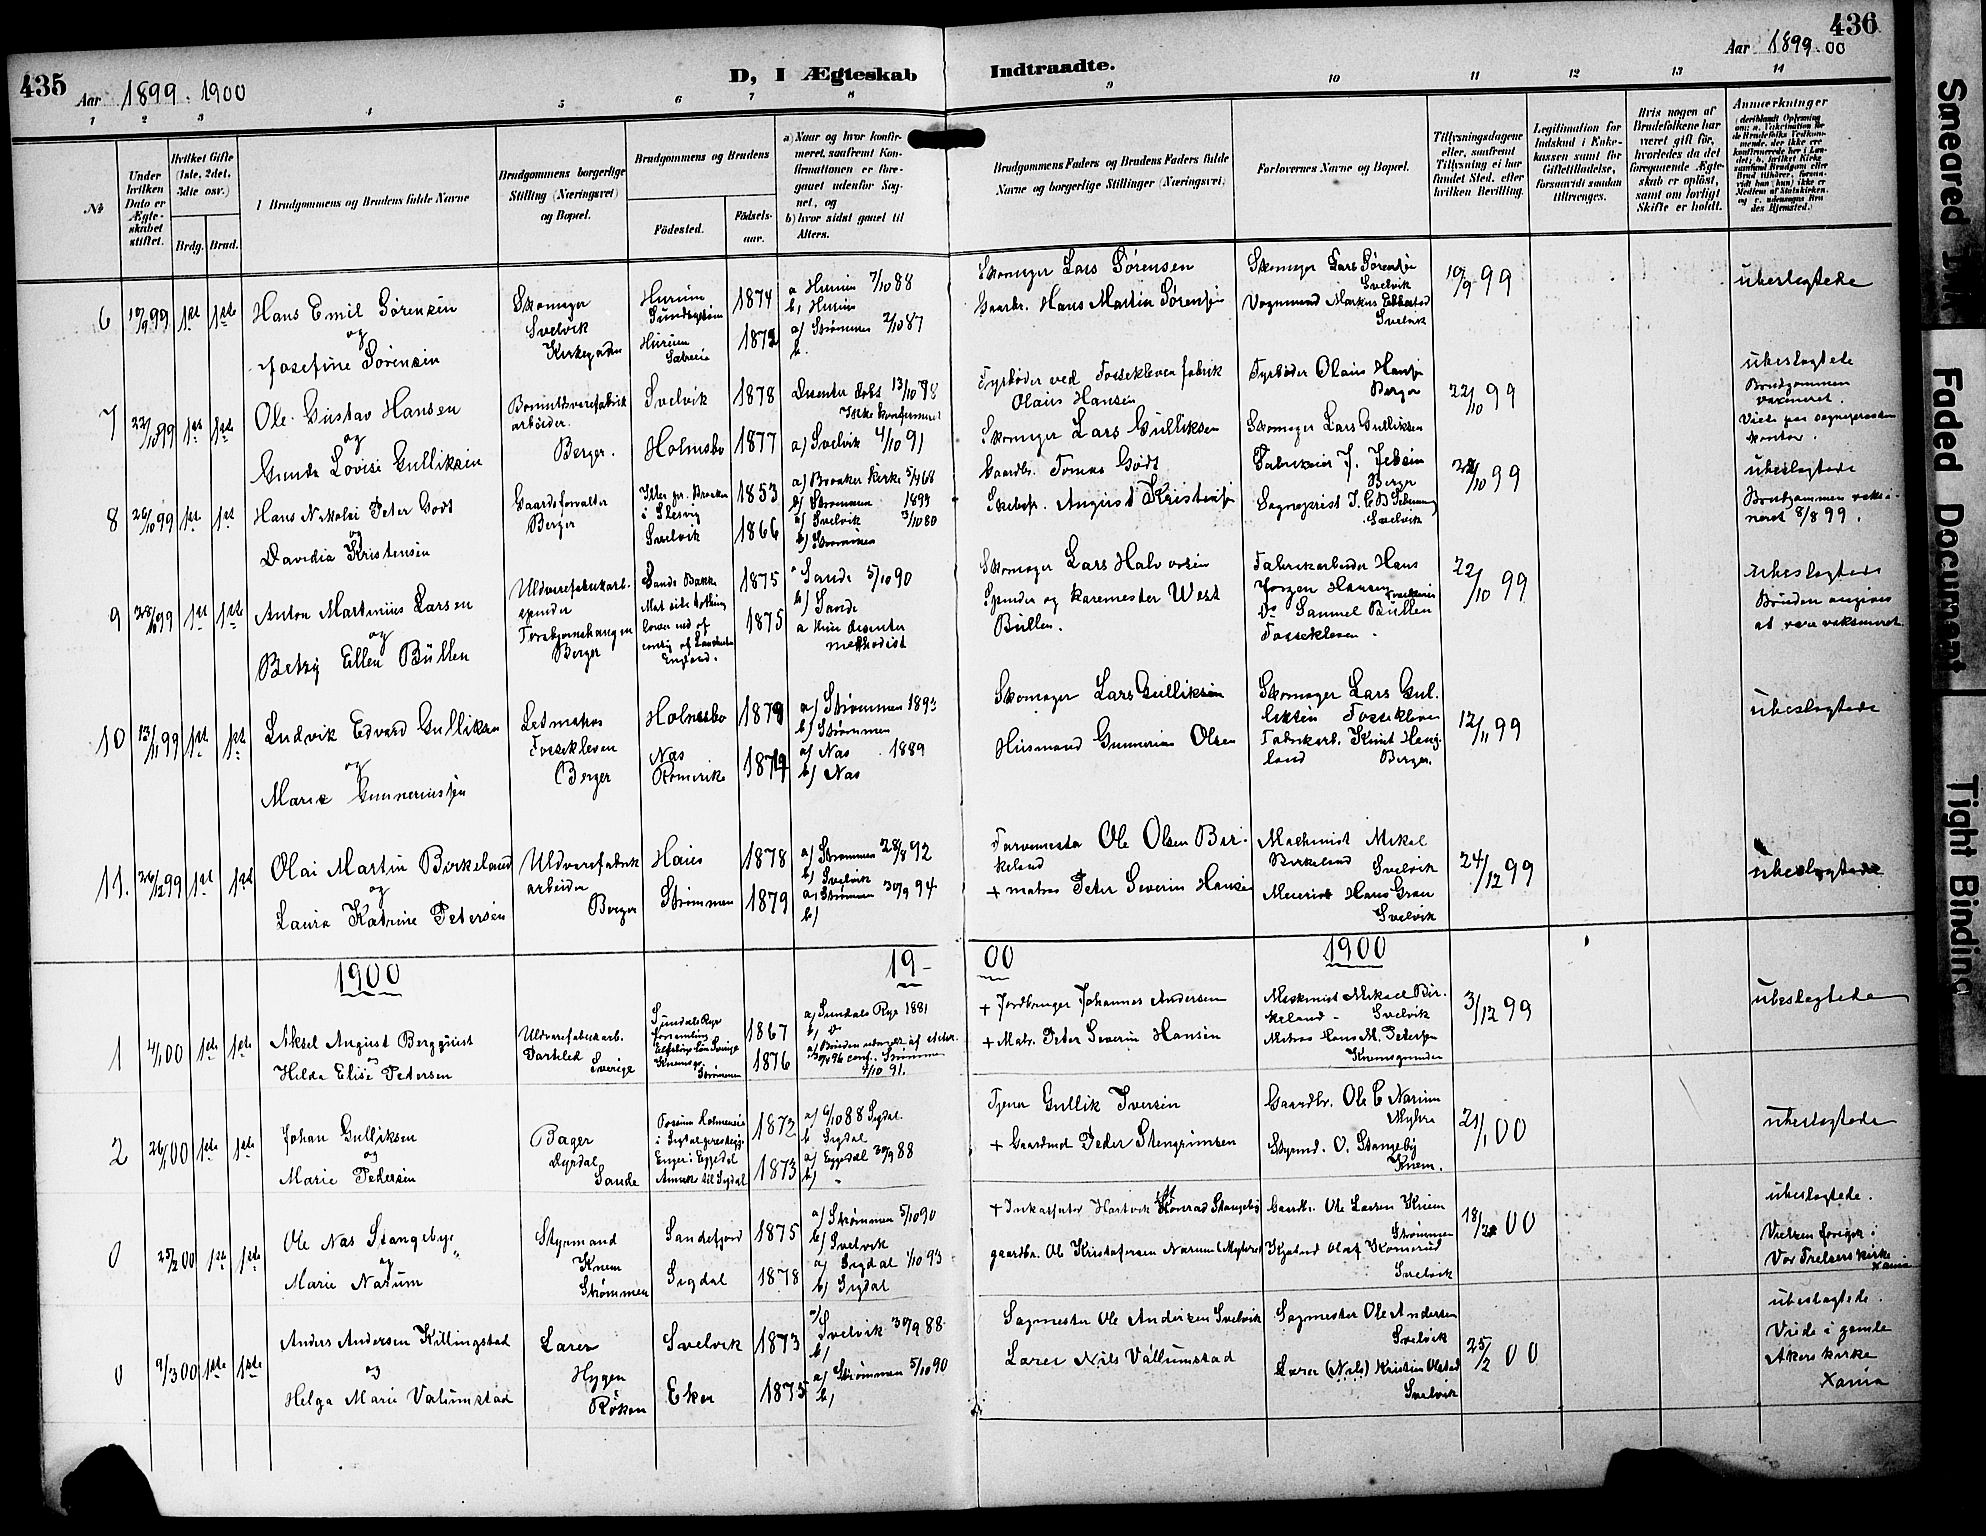 435
Aar 1899. 1900
D, I Ægteskab Indtraadte.
436
Aar 1899.00
1 2 3 4 5 6 7 8 9 10 11 12 13 14
№
Under hvilken Dato er Ægteskabet stiftet.
Hvilket Gifte (1ste, 2det, 3die osv.)
Brdg. Brud.
Brudgommens og Brudens fulde Navne
Brudgommens borgerlige Stilling (Næringsvei) og Bopæl.
Brudgommens og Brudens
Födested.
Födselsaar.
a) Naar og hvor konfirmeret, samfremt Konfirmationen er foregaaet udenfor Sognet, og
b) hvor sidst gaaet til Alters.
Brudgommens Faders og Brudens Faders fulde Navne og borgerlige Stillinger (Næringsvei)
Forlovernes Navne og Bopæl.
Tillysningsdagene eller, samfremt Tillysning ei har fundet Sted, efter hvilken Bevilling.
Legitimation for Indskud i Enkekassen samt for Giftetilladelse, forsaavidt saadan tiltrænges.
Hvis nogen af Brudefolkene har været gift før, hvorledes da det foregaaende Ægteskab er opløst, samt om lovligt Skifte er holdt.
Anmærkninger
6 17/9 99 1st 1ste
Hans Emil Sörensen
og
Josefine Sörensen
Skomager
Svelvik
Kirkegaden
Hurum
1874
Hurum
1872
a Hurum 7/10 88
b, Hurum
a) Strømmen 2/10 87
b.
Skomager Lars Sörensen
Gaardbr. Hans Martin Sörensen
Skomager Lars Sörensen
Svelvik
Vognmand Markus Ebbestad
Svelvik
10/9 99
ubeslegtede
7 22/10 99 1st 1ste
Ole Gustav Hansen
og
Gunda Lovise Gulliksen
arbeider.
Berger.
Svelvik 1878
Holmsbo 1877
a) Svelvik 4/10 91
Fyrbøder ved Fossekleven fabrik
Olaus Hansen
Skomager Lars Gulliksen
Fyrbøder Olaus Hansen
Berger
Skomager Lars Gulliksen
22/10 99
ubeslegtede
Brudgommen
vaksineret.
Viede paa sogneprestens
kontor.
8 26/10 99 1st 1st
Hans Nikolai Peter Godt
og
Davidia Kristensen
Gaardsforvalter
Berger
i Slesvig
Svelvik
1853
1866
a) Broaker Kirke
b) Strømmen 1899
a) Svelvik 3/10 80
b) Strømmen
Gaardbr. Tomas Godt
Skibsf. August Kristensen
Fabrikeier J. Jebsen
Berger
Svelvik
22/10 99
ubeslegtede
Brudgommen vaksineret 8/8 99.
9 28/10 99 1st 1ste
Anton Martinius Larsen
og
Betzy Ellen Büllen
Uldvarefabrikarb.
spinder
Berger
Sande Bakke
England.
1875
1875
Sande 5/10 90
b) Sande
methodist
Skomager Lars Halvorsen
Spinder og karemester West
Büllen.
Fabrikarbeider Hans
Jorgen Hansen Fossekleven
Do Samuel Büllen
Fossekleven.
22/10 99
ubeslegtede
Bruden angives
at være vaksineret.
10 13/11 99 1st 1st
Ludvik Edvard Gulliksen
og
Marie Gunneriusen
Letmatros
Fossekleven
Berger
Holmsbo 1879
Nas
Romerike
a) Strømmen 1893
b) Strømmen
a) Nas 1889
b) Nas
Skomager Lars Gulliksen
Husmand Gunnerius Olsen
Skomager Lars Gulliksen Fossekleven
Fabrikarb. Knut Hougland
Berger.
12/11 99
ubeslegtede
11. 26/12 99 1st 1st
Olai Martin Birkeland
og
Laura Katrine Petersen
Uldvarefabrik
arbeider
Berger
1878
Strømmen 1879
a) Strømmen 28/8 92
b) Svelvik
a) Strømmen 30/9 94
b)
Farvemester Ole Olsen Birkeland
+ matros Peter Severin Hansen
Maskinist Mikal
Birkeland Svelvik
Svelvik
24/12 99
ubeslegtede
1900
19-
00
1900
1 4/1 00 1ste 1ste
Aksel August Bergquist
Hilda Elise Petersen
Uldvarefabrikarb.
Sverige
Sundals Ryr
forsamling
Elfsborgs län Sverige
Strømmen
1867
1876
a) Sundals Ryr 1881
+ Jordbruger Johannes Andersen
+ Matr. Peter Severin Hansen
Maskinist Mikael Birkeland - Svelvik
Matros Hans M. Petersen
3/12 99
ubeslegtede
2 26/1 00 1ste 1ste
Johan Gulliksen
og
Marie Pedersen
Bager
Sande
1872
1873
a) 6/10 88 Sigdal.
b Sigdal
a) Eggedal 30/9 88
b)
Tjener Gullik Iversen
+ Gaardmd Peder Stengrimsen
Gaardbr. Ole C Narum
Myhre
Styrmd. O. Stangeby
Knem.
21/1 00
ubeslegtede
0 25/2 00 1ste 1ste
Ole Nas Stangebye
og
Marie Narum
Styrmand
Knem
Strømmen
Sandefjord 1875
Sigdal 1878
a) Strømmen 5/10 90
b) Svelvik
a) Sigdal 1/10 93
b) Sigdal
+ Inkassator Hartvik Konrad Stangeby
gaardbr. Ole Kristofersen Narum (Myhre)
Gaardbr. Ole Larsen Knem
Strømmen
Svelvik
18/2 00
ubeslegtede.
Vielsen foregik i
Vor Frelsers kirke
Xania
0 9/3 00 1ste 1ste
Anders Andersen Killingstad
og
Helga Marie Vallumstad
Larer
Hygen
Röken
Svelvik 1873
Eker 1875
a) Svelvik 30/9 88.
b)
a) Strømmen 5/10 90
b)
Sagmester Ole Andersen Svelvik
Larer Nils Vallumstad
Sagmester Ole Andersen
Svelvik
Larer (Nils) Kristian Olstad
Svelvik
25/2 00
ubeslegtede.
Viede i gamle
Akers kirke
Xania
Smeared Ink
Faded Document
Tight Binding